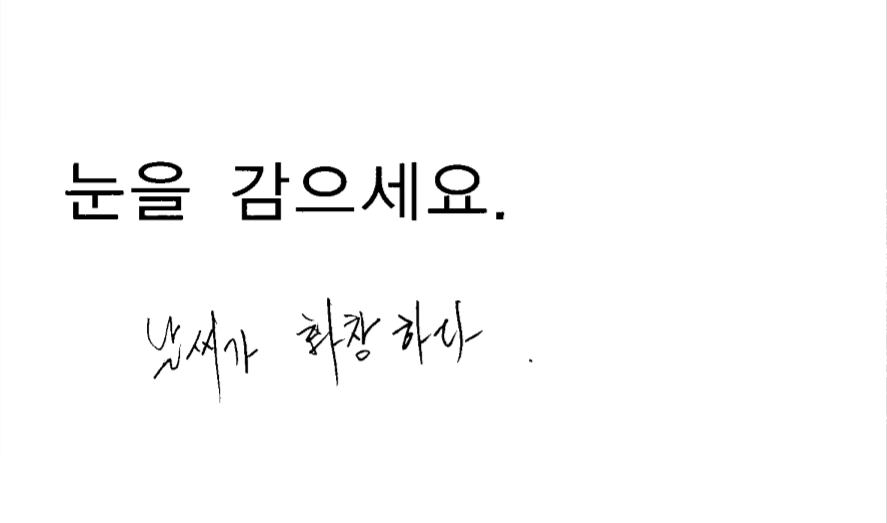 눈을 감으세요.
날씨가 화창하다.